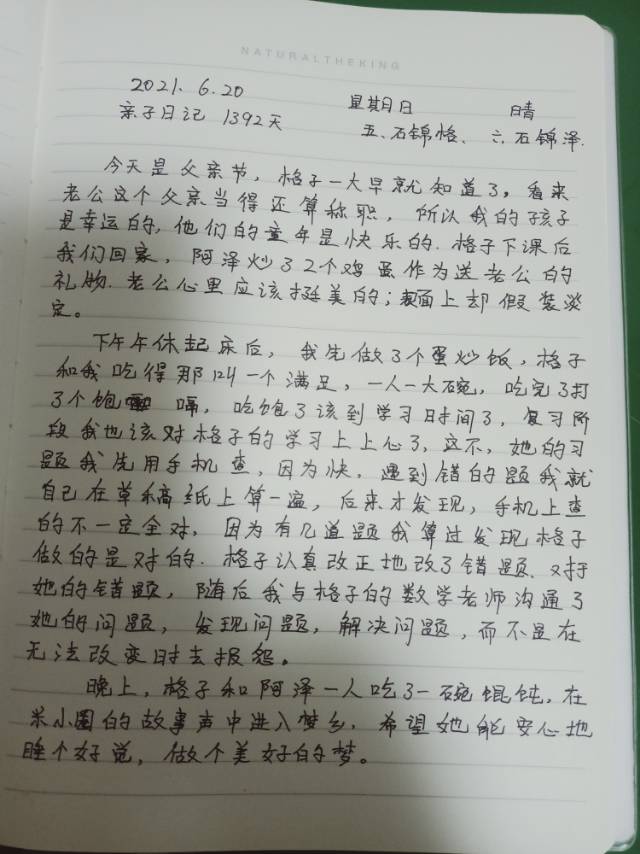 NATURALTHEKING
2021. 6.20 星期日 晴
亲子日记 1392天 五、石锦格、六石锦泽.
今天是父亲节，格子一大早就知道了，看来
老公这个父亲当得还算称职，所以我的孩子
是幸运的，他们的童年是快乐的. 格子下课后
我们回家，阿泽炒了2个鸡蛋作为送老公的
礼物. 老公心里应该挺美的；表面上却假装淡
定。
下午午休起床后，我先做了个蛋炒饭，格子
和我吃得那叫一个满足，一人一大碗，吃完了打
了个饱嗝，吃饱了该到学习时间了，复习阶
段我也该对格子的学习上上心了，这不，她的习
题我先用手机查，因为快，遇到错的题我就
自己在草稿纸上算一遍，后来才发现，手机上查
的不一定全对，因为有几道题我算过发现格子
做的是对的. 格子认真改正地改了错题. 对于
她的错题，随后我与格子的数学老师沟通了
她的问题，发现问题，解决问题，而不是在
无法改变时去报怨。
晚上，格子和阿泽一人吃了一碗馄饨，在
米小圈的故事声中进入梦乡. 希望她能安心地
睡个好觉，做个美好的梦。